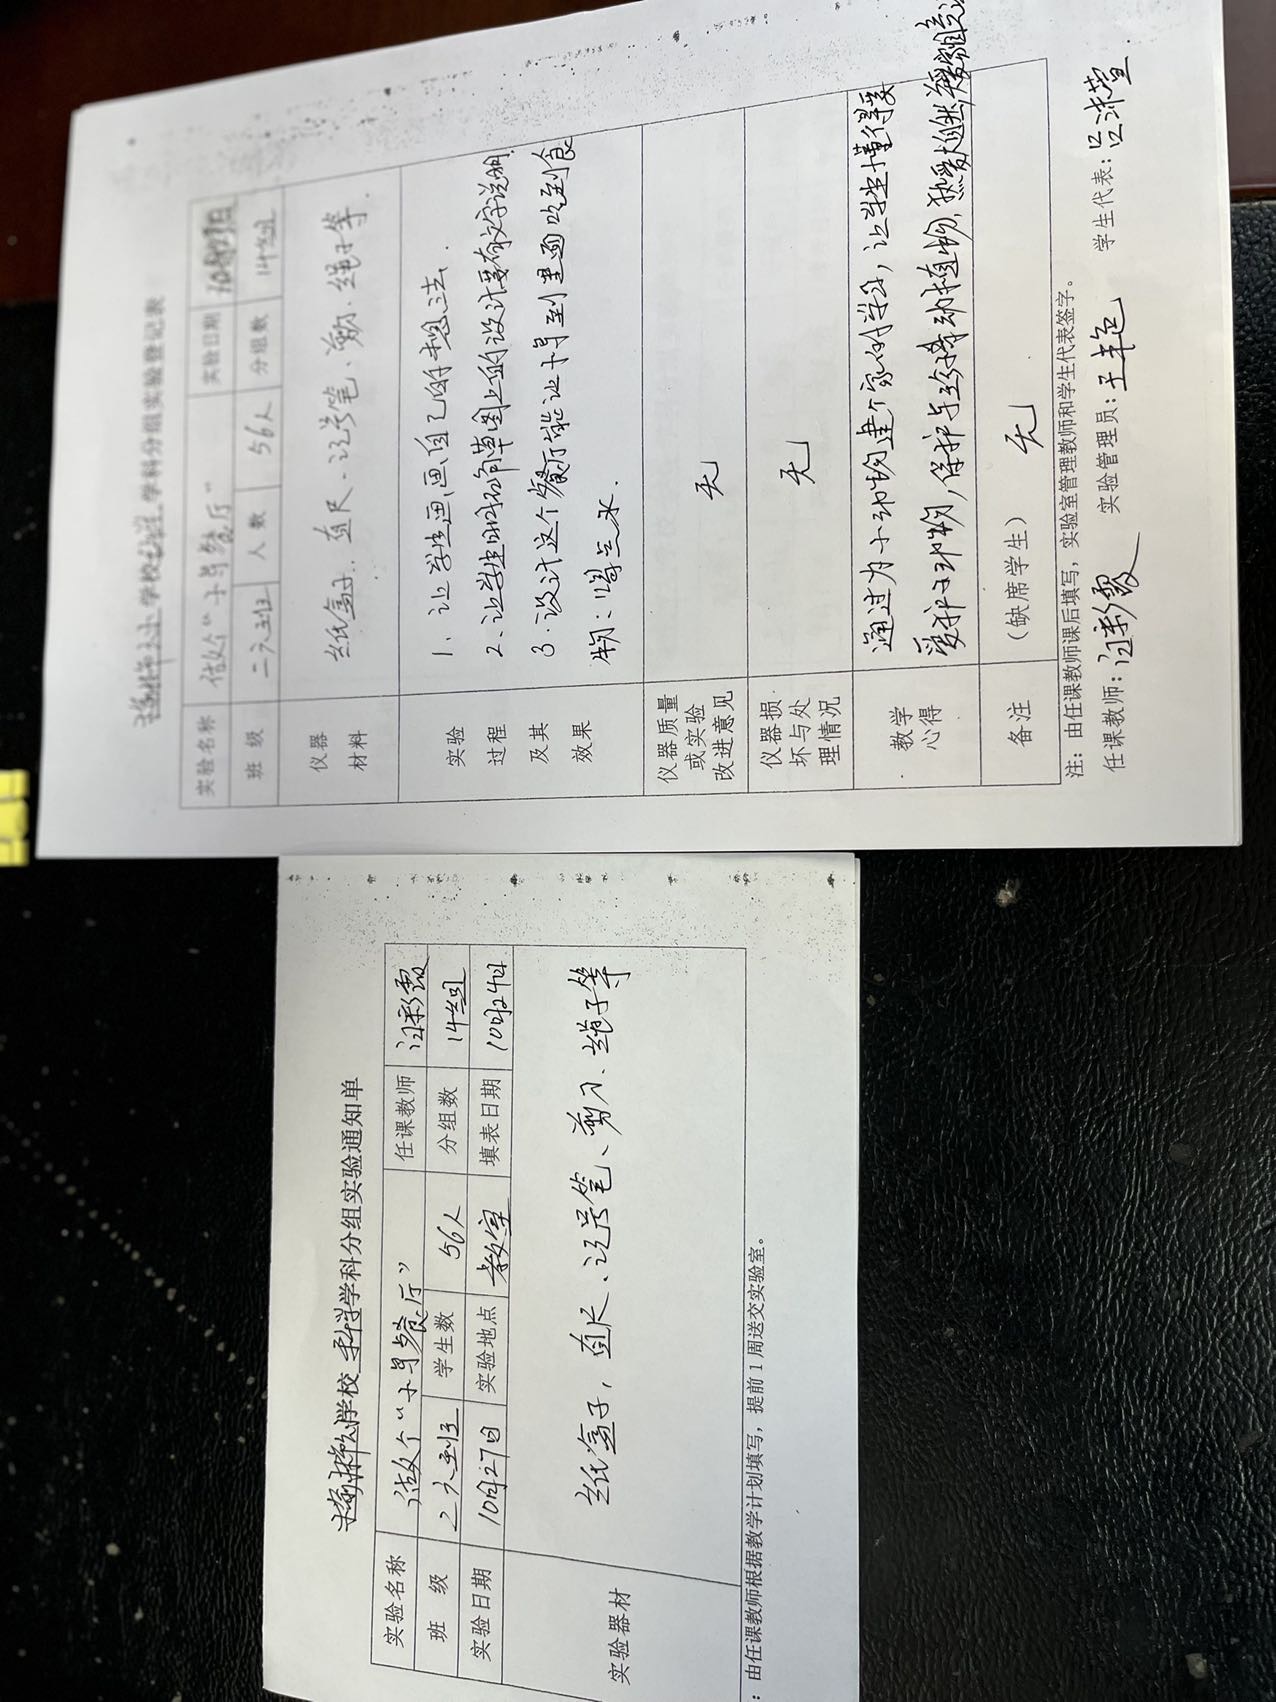 学校 科学 学科分组实验登记表
实验名称 做个“小鸟餐厅” 实验日期 10月27日
班 级 二六班 人 数 56人 分组数 14组
仪器材料 纸盒子、直尺、记号笔、剪刀、绳子等.
实验过程及其效果
1、让学生画画自己的想法.
2、让学生明确草图上的设计要有文字说明.
3、设计这个餐厅能让小鸟到里面吃到食
物;喝点水.
仪器质量或实验改进意见 无
仪器损坏与处理情况 无
教学心得
通过为小动物建个家的学习,让学生懂得要
爱护小动物,保护珍稀动植物,热爱大自然
备注 (缺席学生) 无
注:由任课教师课后填写,实验室管理教师和学生代表签字。
任课教师: 实验管理员: 学生代表:
学校 科学 学科分组实验通知单
实验名称 做个“小鸟餐厅” 任课教师
班 级 2六班 学生数 56人 分组数 14组
实验日期 10月27日 实验地点 教室 填表日期 10月24日
实验器材 纸盒子,直尺、记号笔、剪刀、绳子等
:由任课教师根据教学计划填写,提前1周送交实验室。